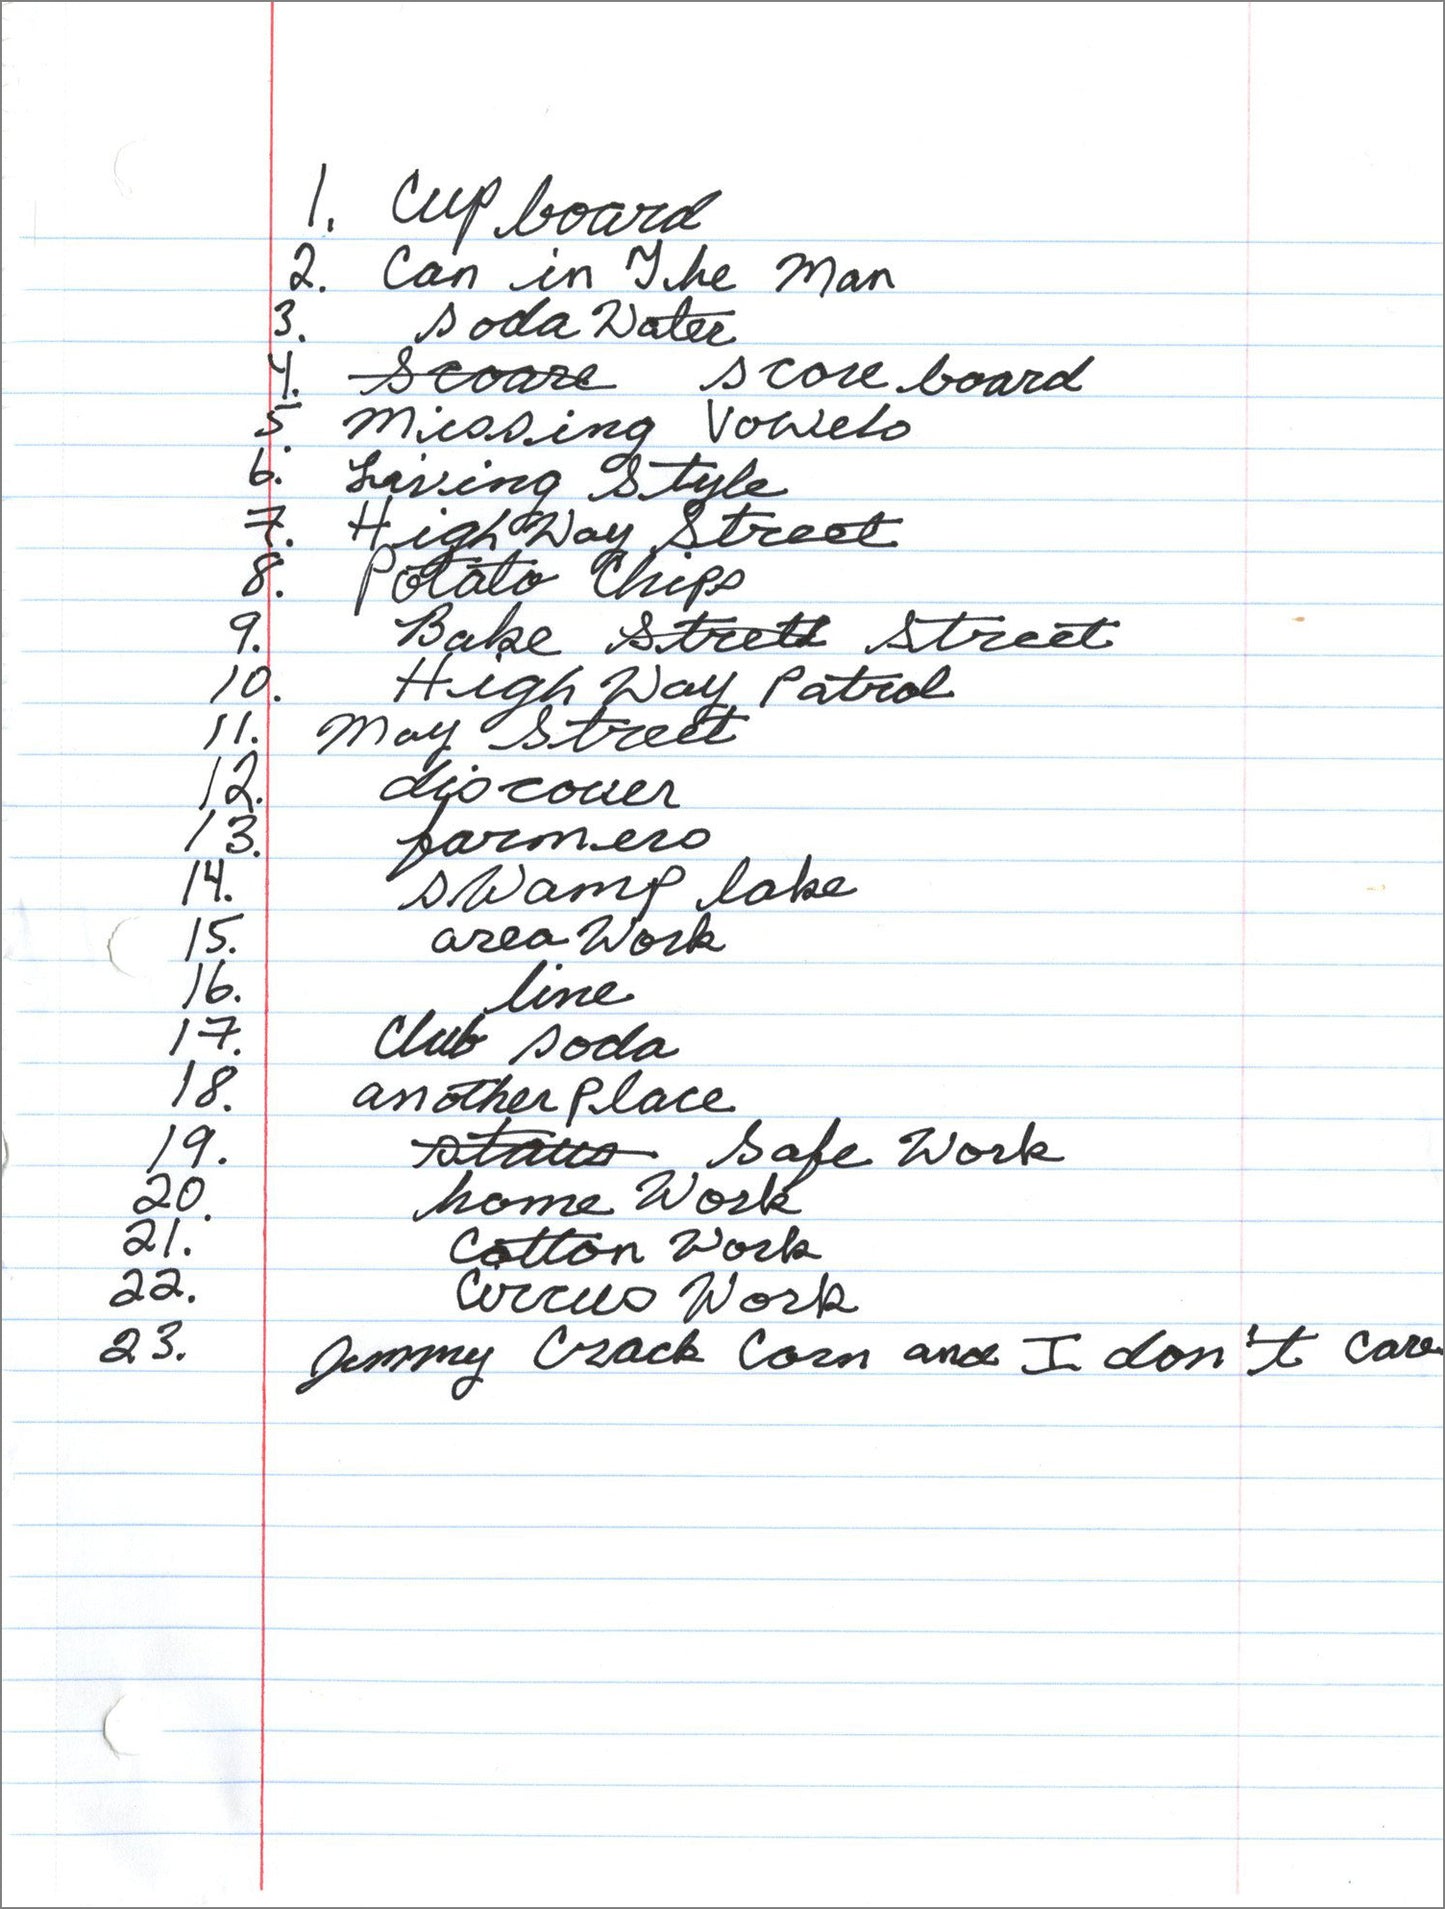 1. Cup board
2. Can in The Man
3. soda Water
4. Scoare score board
5. Missing Vowels
6. Living Style
7. High Way Street
8. Potato Chips
9. Bake Strett Street
10. High Way Patrol
11. May Street
12. discover
13. farmers
14. swamp lake
15. area Work
16. line
17. Club soda
18. another place
19. Safe Work
20. home Work
21. Cotton Work
22. Circus Work
23. Jimmy Crack Corn and I don't care